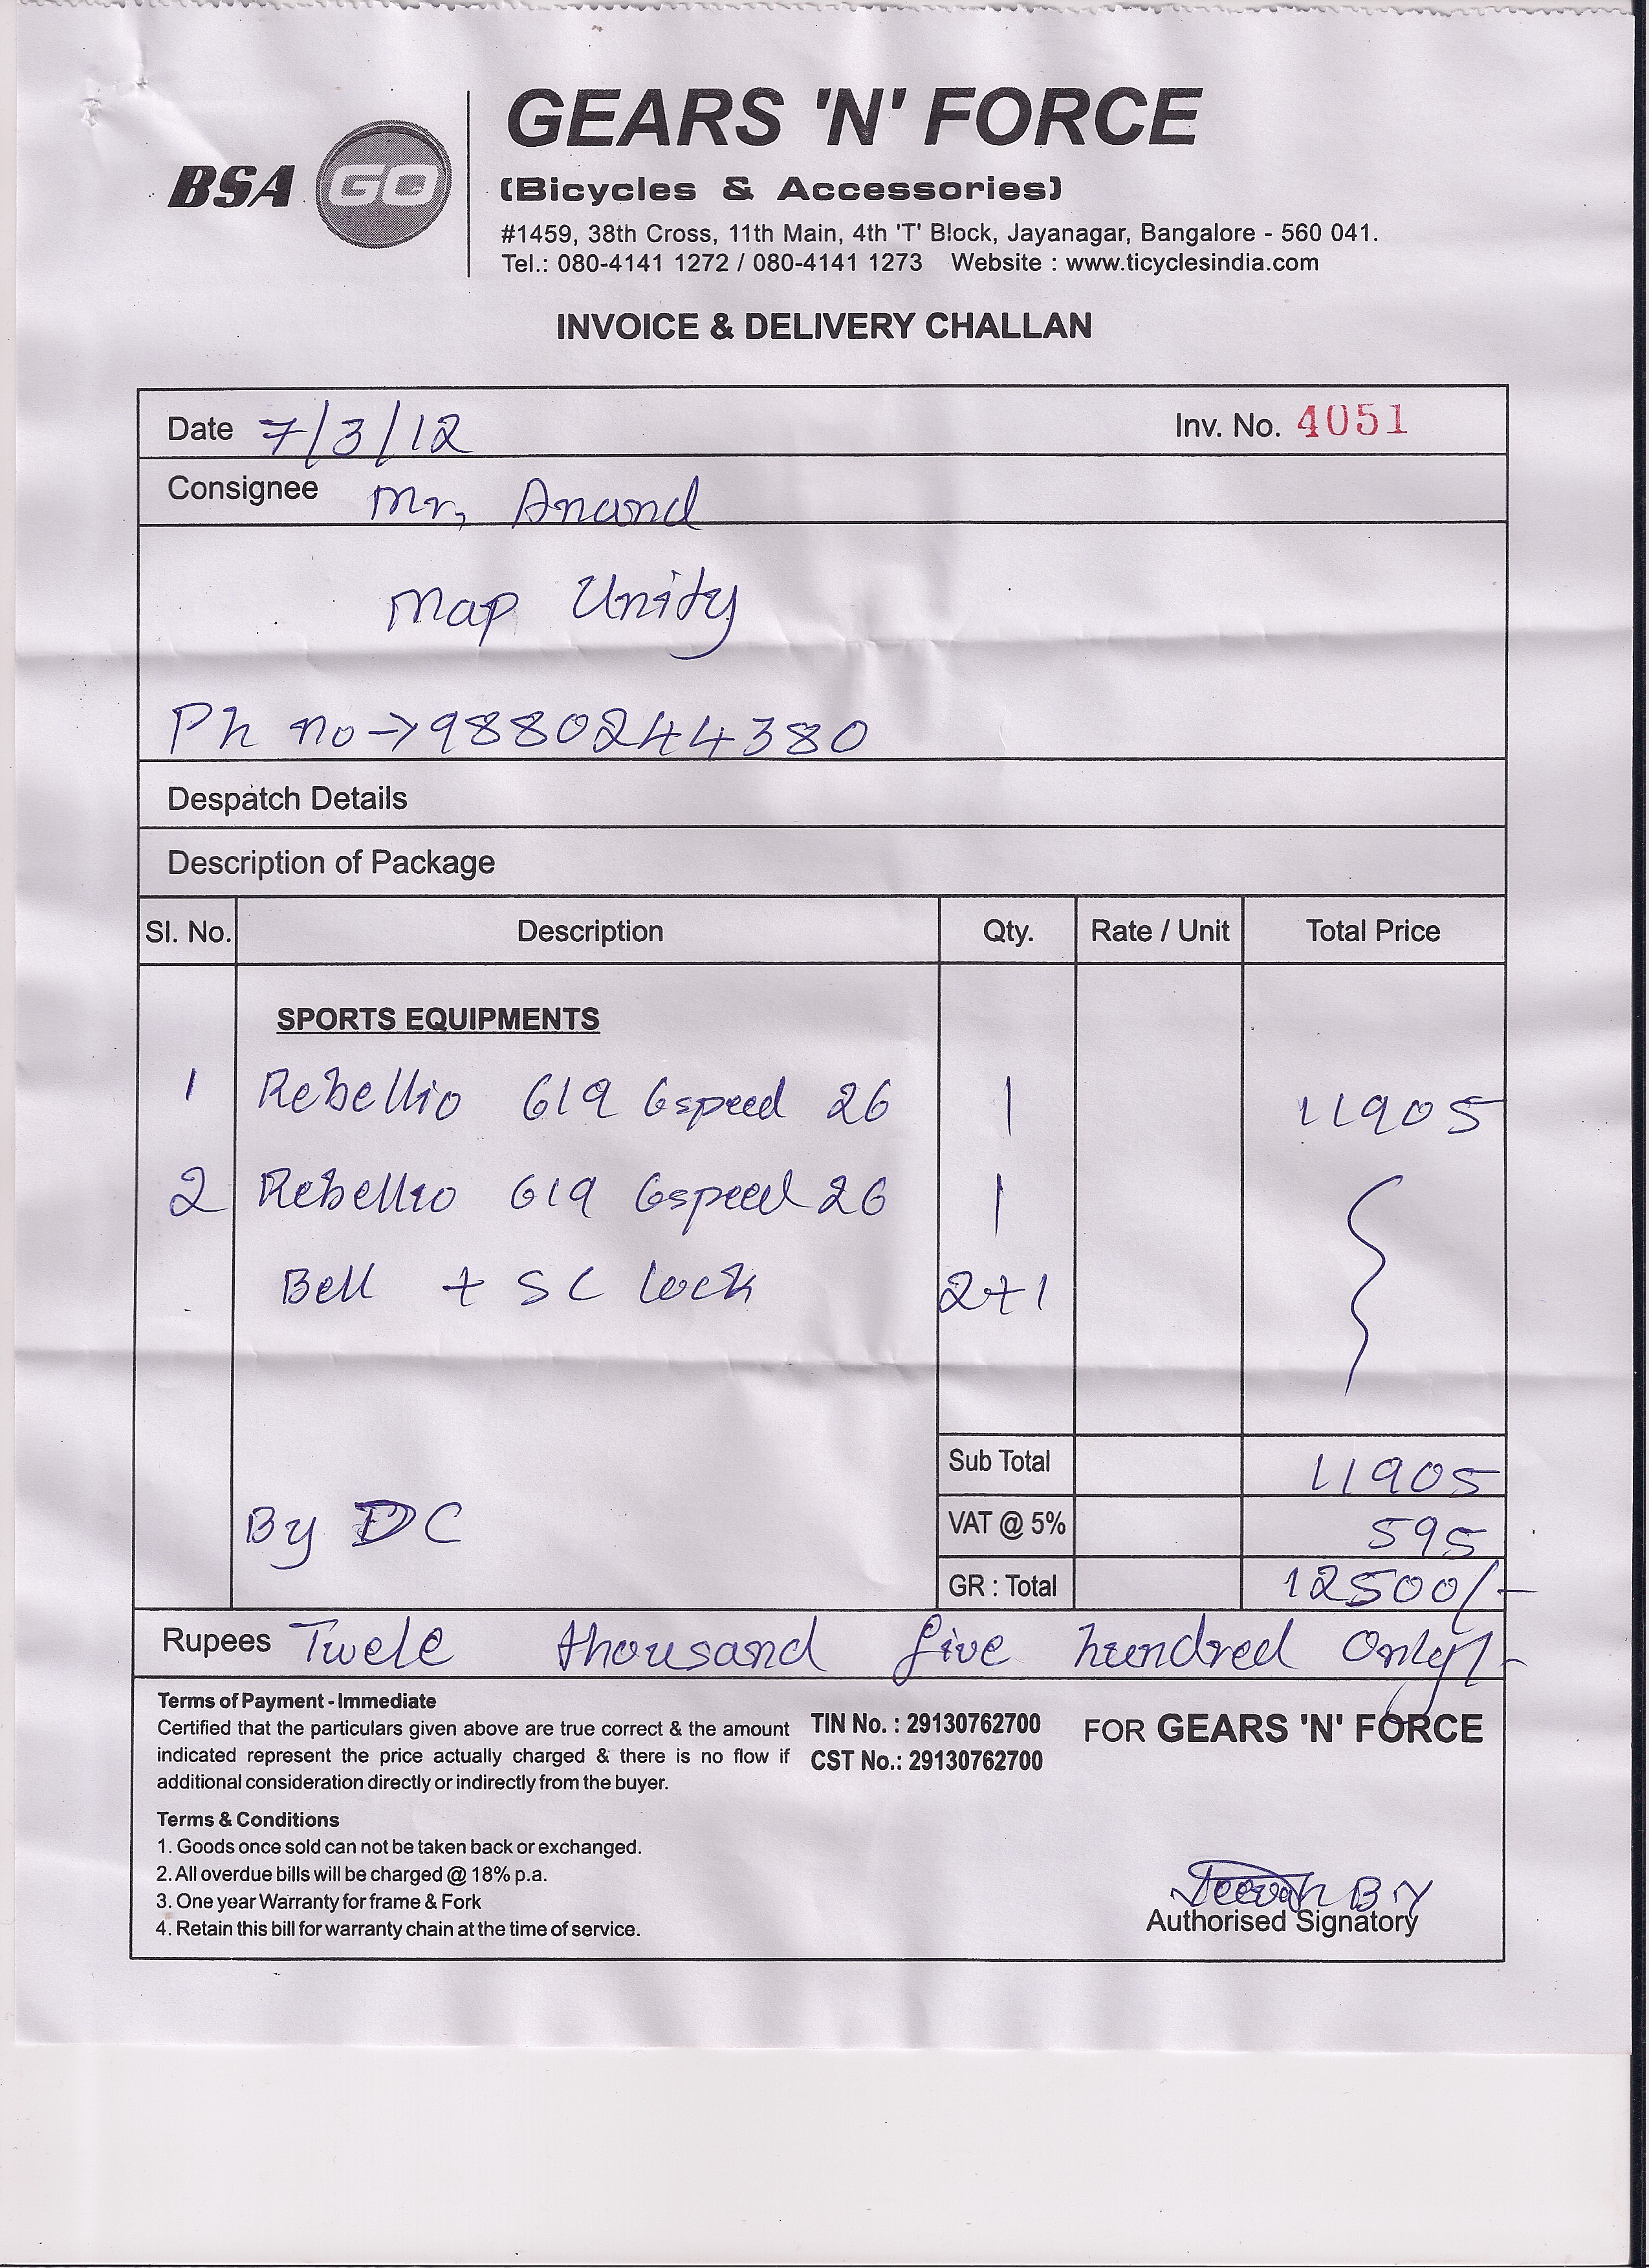 BSA GO
GEARS 'N' FORCE
(Bicycles & Accessories)
#1459, 38th Cross, 11th Main, 4th 'T' Block, Jayanagar, Bangalore - 560 041.
Tel.: 080-4141 1272 / 080-4141 1273 Website : www.ticyclesindia.com
INVOICE & DELIVERY CHALLAN
Date 7/3/12 Inv. No. 4051
Consignee Mr, Anand
Map Unity
Ph no → 9880244380
Despatch Details
Description of Package
Sl. No. Description Qty. Rate / Unit Total Price
SPORTS EQUIPMENTS
1 Rebellio 619 6speed 26 1 11905
2 Rebellio 619 6speed 26 1
Bell + SC lock 2+1
Sub Total 11905
By DC VAT @ 5% 595
GR : Total 12500/-
Rupees Twele thousand five hundred Only/-
Terms of Payment - Immediate
Certified that the particulars given above are true correct & the amount
indicated represent the price actually charged & there is no flow if
additional consideration directly or indirectly from the buyer.
TIN No. : 29130762700
CST No.: 29130762700
FOR GEARS 'N' FORCE
Terms & Conditions
1. Goods once sold can not be taken back or exchanged.
2. All overdue bills will be charged @ 18% p.a.
3. One year Warranty for frame & Fork
4. Retain this bill for warranty chain at the time of service.
B Y
Authorised Signatory